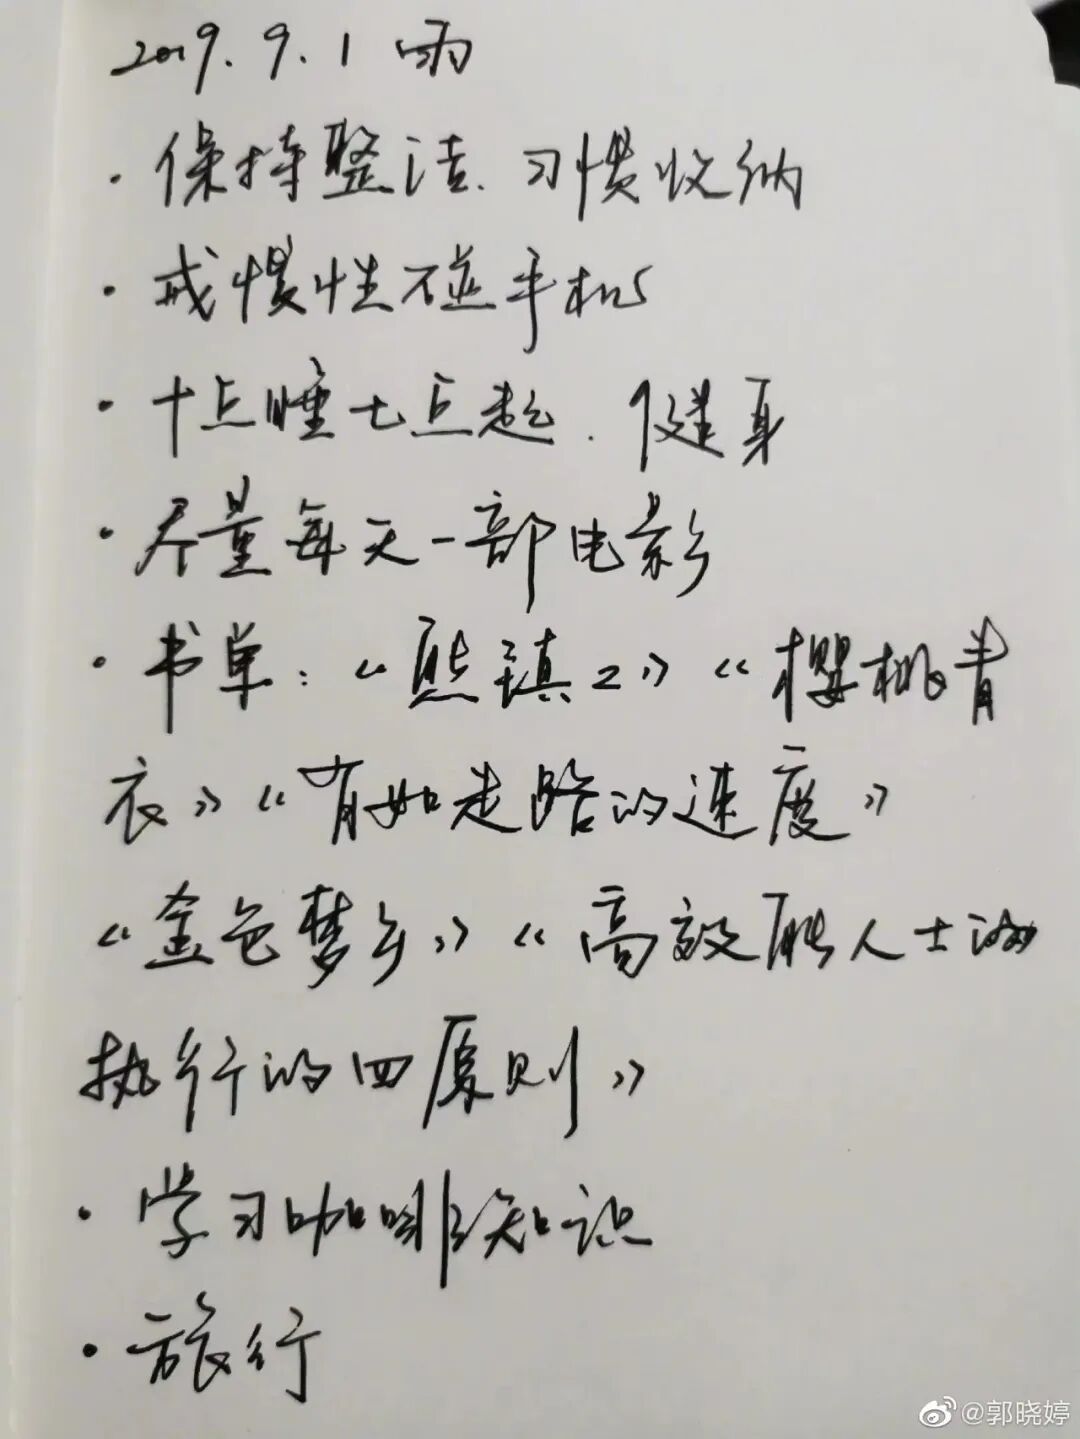 2019.9.1 雨
·保持整洁、习惯收纳
·戒惯性不碰手机
·十点睡七点起.健身
·尽量每天一部电影
·书单:《熊镇2》《樱桃青
衣》《有如走路的速度》
《金色梦乡》《高效能人士的
执行的四原则》
·学习咖啡知识
·旅行
@郭晓婷